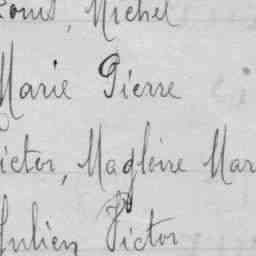 Louis, Michel
Marie Pierre
Victor, Magloire Mar
Julien Victor